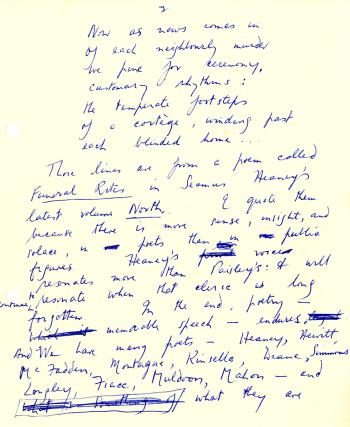 2
Now as news comes in
of each neighbourly murder
we pine for ceremony,
customary rhythms:
the temperate footsteps
of a cortège, winding past
each blinded home...
Those lines are from a poem called
Funeral Rites in Seamus Heaney's
latest volume North. I quote them
because there is more sense, insight, and
solace, in poets than in public
figures. Heaney's voice
resonates more than Paisley's: it will
continue to resonate when that cleric is long
forgotten. In the end, poetry –
memorable speech – endures.
And we have many poets – Heaney, Hewitt, Simmons
McFadden, Montague, Kinsella, Deane,
Longley, Fiacc, Muldoon, Mahon – and
what they are